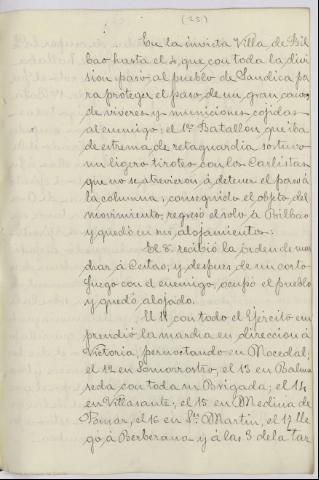 (25)
En la invicta Villa de Bil
bao hasta el 4, que con toda la divi
sion pasó al pueblo de Sandica pa
ra proteger el paso de un gran
de viveres y municiones cojidas
al enemigo; el 1er Batallon que iba
de estrema de retaguardia sostuvo
un ligero tiroteo con los Carlistas
que no se atrevieron á detener el paso á
la columna; conseguido el objeto del
movimiento, regresó el solo á Bilbao
y quedó en sus alojamientos.
El 8 recibió la órden de mar
char á Cestao, y despues de un corto
fuego con el enemigo, ocupó el pueblo
y quedó alojado.
El 11 con todo el Ejército em
prendió la marcha en direccion á
Victoria, pernoctando en Mocedal;
el 12 en Somorrostro, el 13 en Balma
seda con toda su Brigada; el 14
en Villasante; el 15 en Medina de
Pomar, el 16 en Sn Martin, el 17 lle
gó á Berberana y á las 3 de la tar